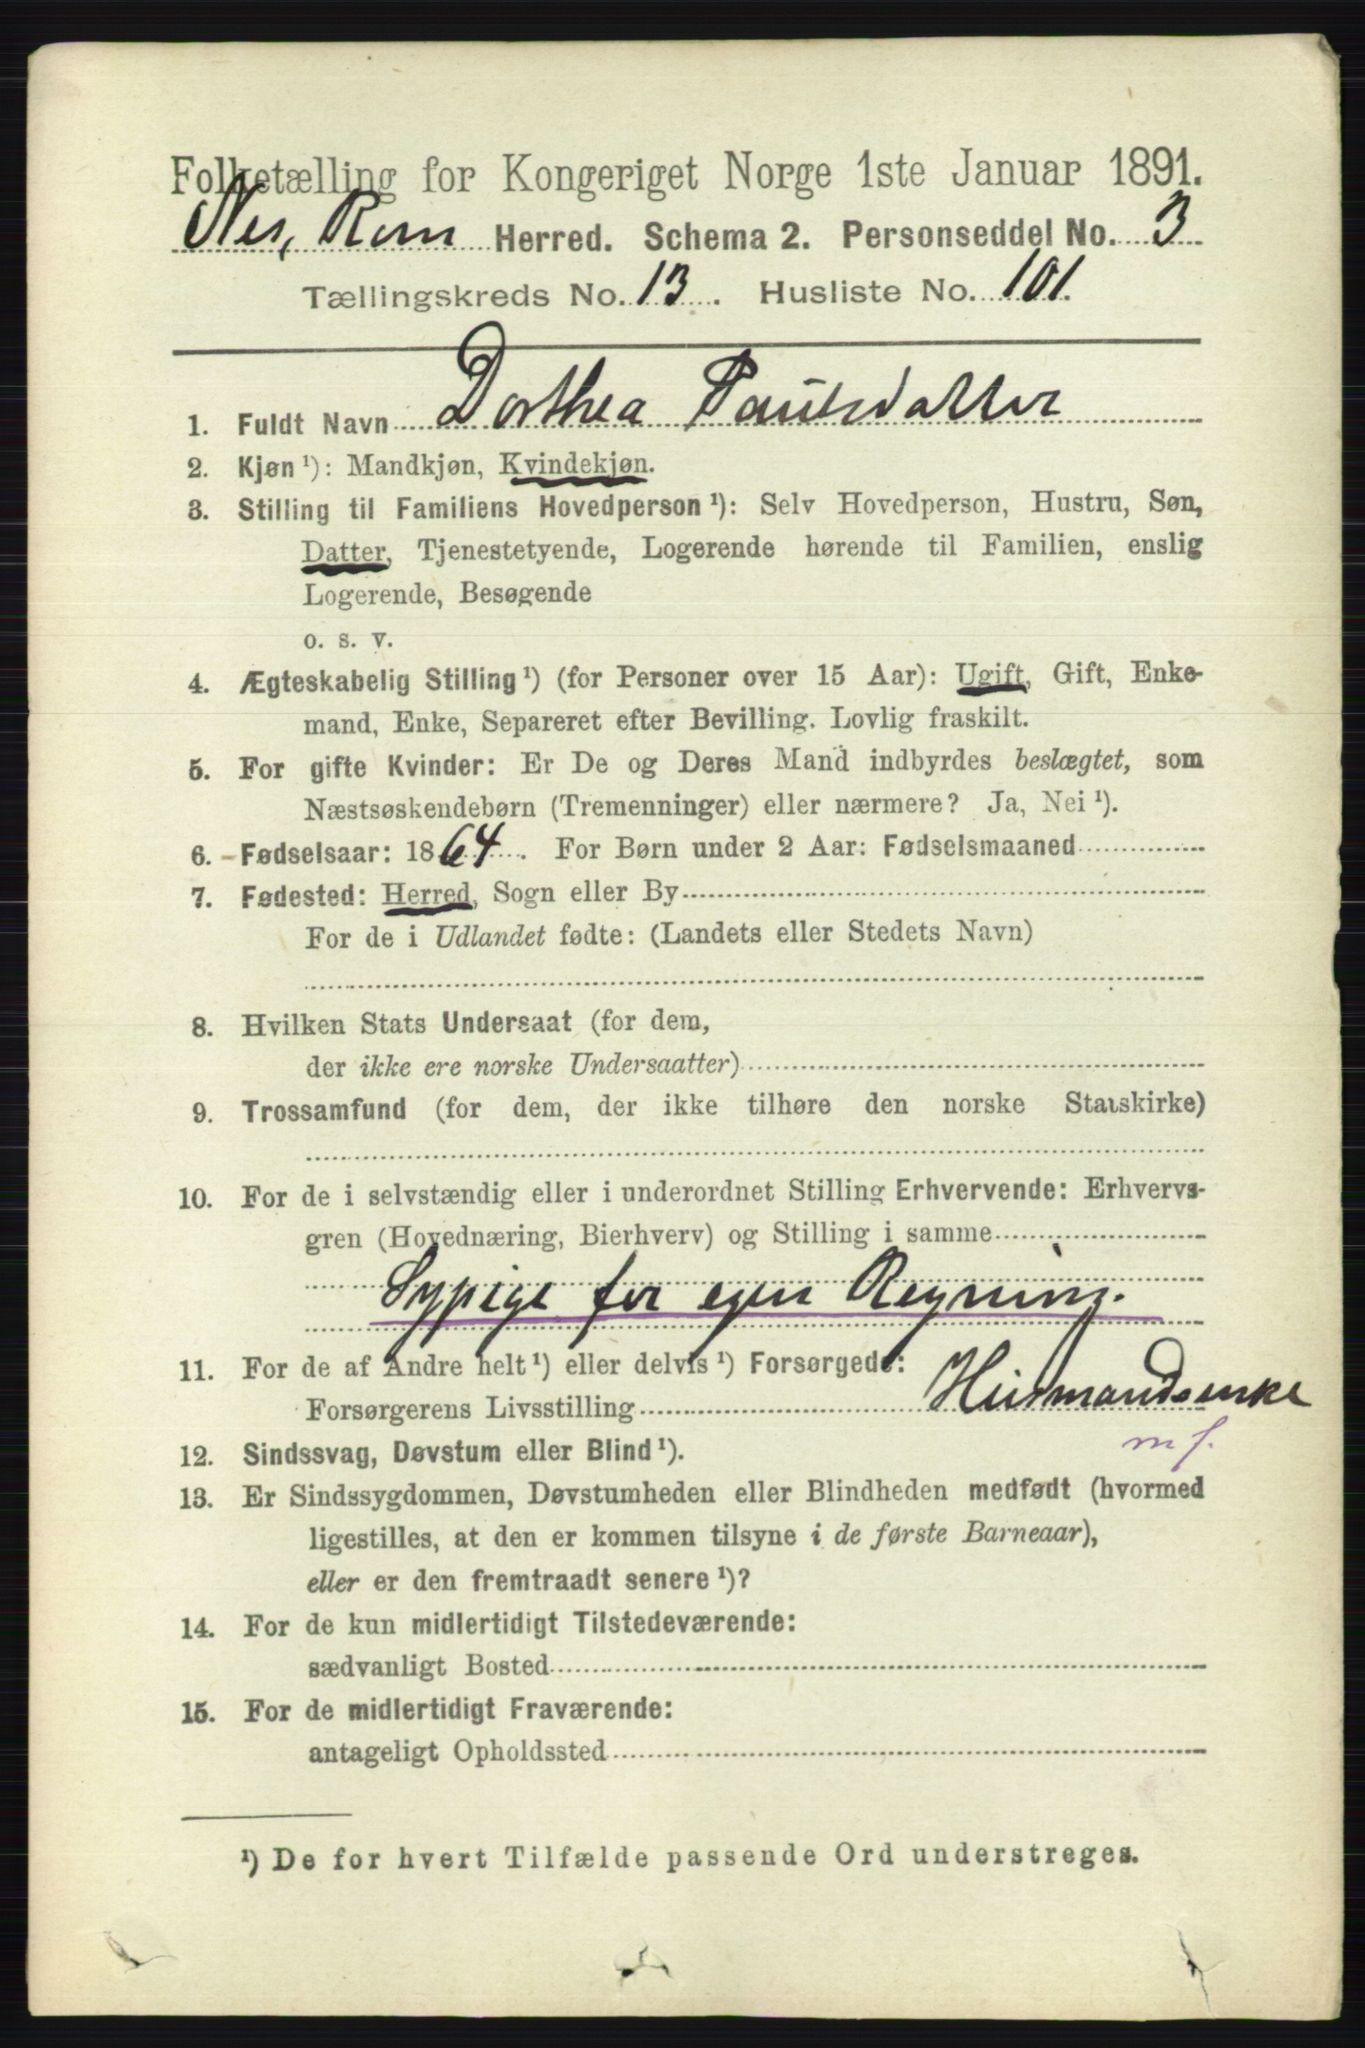 Folketælling for Kongeriget Norge 1ste Januar 1891.
Nes, Rom Herred. Schema 2. Personseddel No. 3
Tællingskreds No. 13. Husliste No. 101.
1. Fuldt Navn Dorthea Paulsdatter
2. Kjøn ¹): Mandkjøn, Kvindekjøn.
3. Stilling til Familiens Hovedperson ¹): Selv Hovedperson, Hustru, Søn,
Datter, Tjenestetyende, Logerende hørende til Familien, enslig
Logerende, Besøgende
o. s. v.
4. Ægteskabelig Stilling ¹) (for Personer over 15 Aar): Ugift, Gift, Enke-
mand, Enke, Separeret efter Bevilling. Lovlig fraskilt.
5. For gifte Kvinder: Er De og Deres Mand indbyrdes beslægtet, som
Næstsøskendebørn (Tremenninger) eller nærmere? Ja, Nei ¹).
6. Fødselsaar: 1864. For Børn under 2 Aar: Fødselsmaaned
7. Fødested: Herred, Sogn eller By
For de i Udlandet fødte: (Landets eller Stedets Navn)
8. Hvilken Stats Undersaat (for dem,
der ikke ere norske Undersaatter)
9. Trossamfund (for dem, der ikke tilhøre den norske Statskirke)
10. For de i selvstændig eller i underordnet Stilling Erhvervende: Erhvervs-
gren (Hovednæring, Bierhverv) og Stilling i samme
Sypige for egen Regning.
11. For de af Andre helt ¹) eller delvis ¹) Forsørgede:
Forsørgerens Livsstilling Husmandsenke
m f.
12. Sindssvag, Døvstum eller Blind ¹).
13. Er Sindssygdommen, Døvstumheden eller Blindheden medfødt (hvormed
ligestilles, at den er kommen tilsyne i de første Barneaar),
eller er den fremtraadt senere ¹)?
14. For de kun midlertidigt Tilstedeværende:
sædvanligt Bosted
15. For de midlertidigt Fraværende:
antageligt Opholdssted
¹) De for hvert Tilfælde passende Ord understreges.